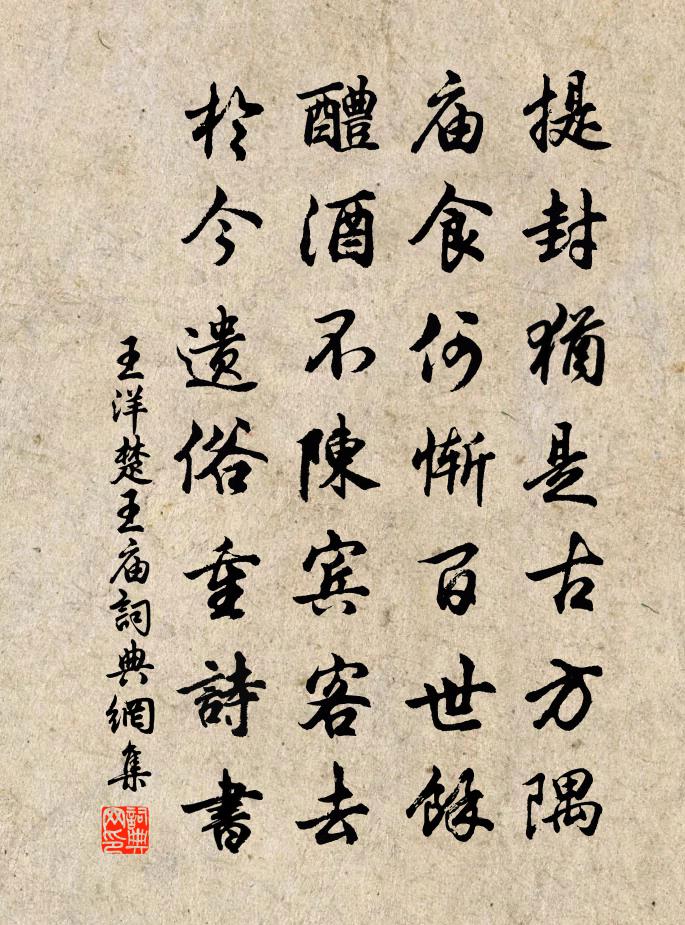 提封猶是古方隅
庙食何惭百世餘
醴酒不陳宾客去
於今遗俗重詩書
王洋楚王庙詞典網集
詞典网印